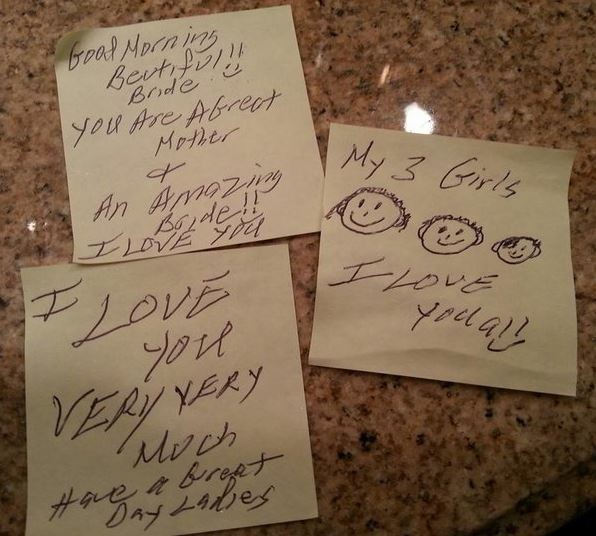 Good Morning
Beutiful!!
Bride
You Are A Great
Mother
+
An Amazing
Bride!!
I LOVE YOU
My 3 Girls
I LOVE
you all
I LOVE
you
VERY VERY
Much
Have a Great
Day Ladies